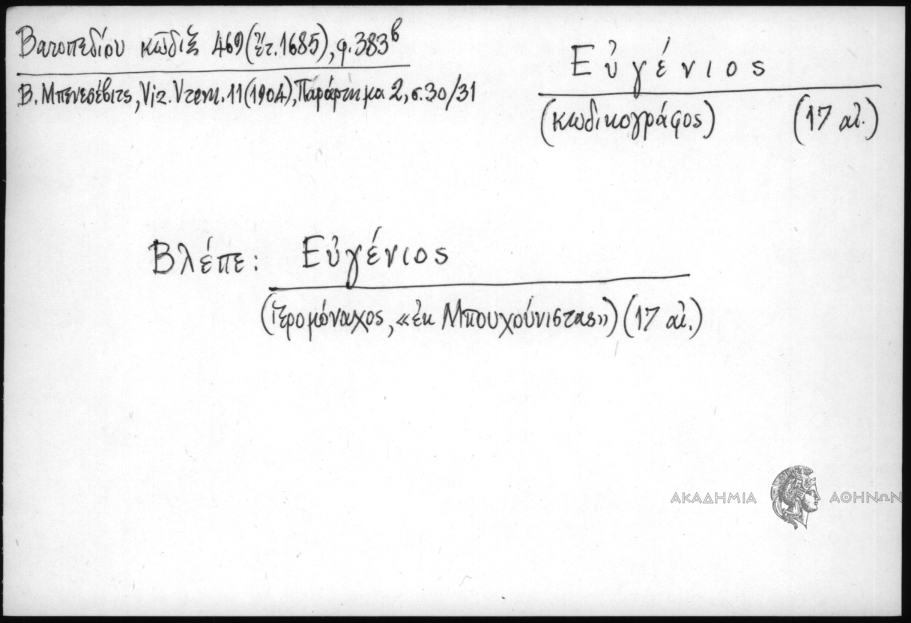 Βατοπεδίου κῶδιξ 469 (ἔτ. 1685), φ. 383β
Β. Μπενεσέβιτς, Viz. Vrem. 11 (1904), Παράρτημα 2, σ. 30/31
Εὐγένιος
(κωδικογράφος) (17 αἰ.)
Βλέπε: Εὐγένιος
(ἱερομόναχος, «ἐκ Μπουχούνιστας») (17 αἰ.)
ΑΚΑΔΗΜΙΑ ΑΘΗΝΩΝ